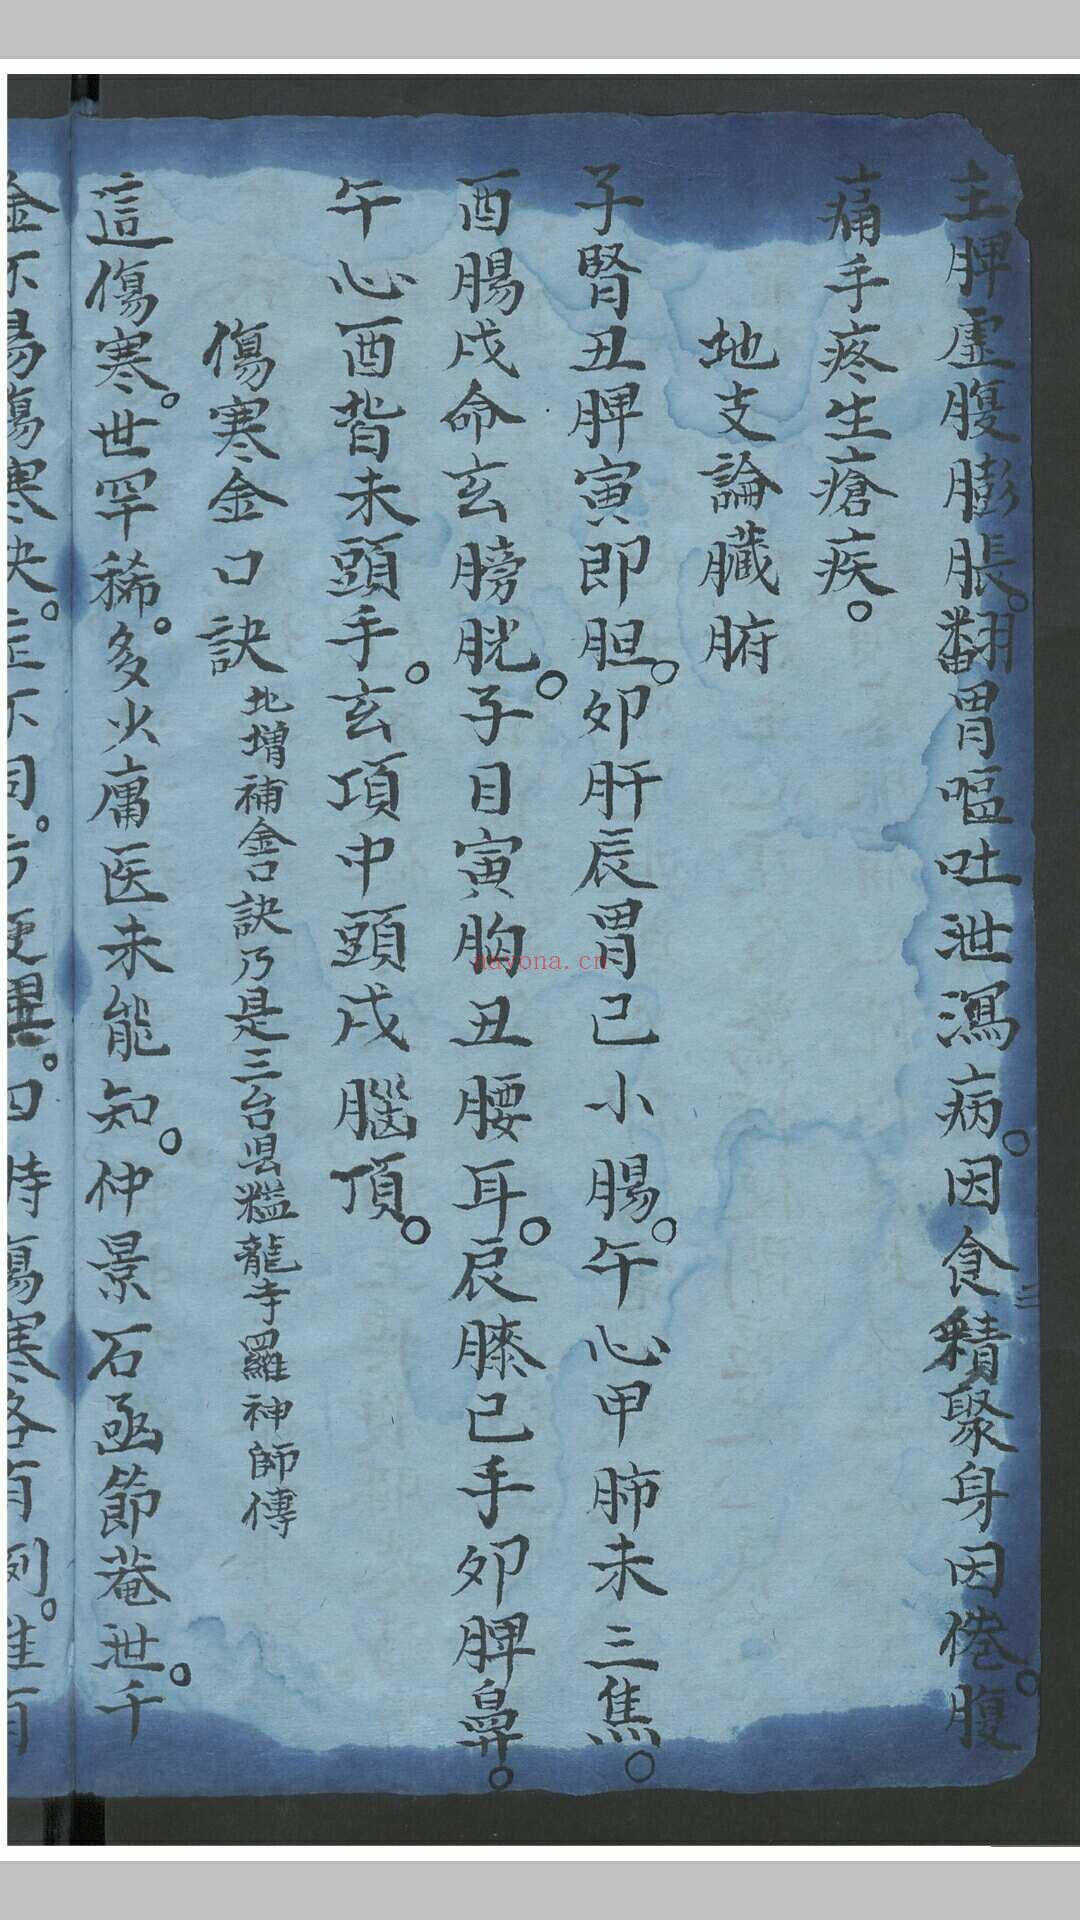 主脾虛腹膨脹。翻胃嘔吐泄瀉病。因食積聚身因倦。腹
痛手疼生瘡疾。
地支論臟腑
子腎丑脾寅即胆。夘肝辰胃已小腸。午心甲肺未三焦。
酉腸戌命玄膀胱。子目寅胸丑腰耳。辰膝已手夘脾鼻。
午心酉背未頭手。玄項中頭戌腦頂。
傷寒金口訣
此增補金口訣乃是三台县龍寺羅神師傳
這傷寒。世罕稀。多少庸医未能知。仲景石函節菴泄。千
金不易傷寒訣。症不同。方便異。四時傷寒各有例。惟有